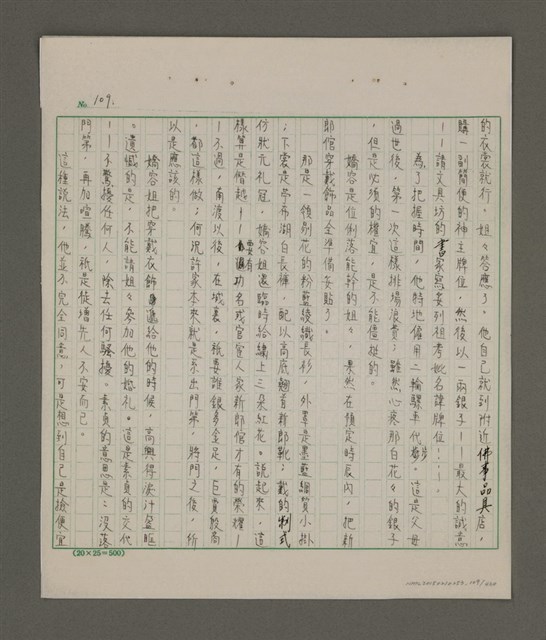 No. 109.
的衣裳就行。姐々答應了。他自己就到附近佛事品具店，
購一副簡便的神主牌位，然後以一兩銀子——最大的誠意
——請文具坊的書家寫妥列祖考妣名諱牌位！…。
為了把握時間，他特地僱用二輪騾車代步。這是父母
過世後，第一次這樣排場浪費；雖然心疼那白花々的銀子
，但是必須的權宜，是不能儘挺的。
嬌容是位俐落能幹的姐々，果然在預定時辰內，把新
郎倌穿戴飾品全準備妥貼了。
那是一領剔花的粉藍綾織長衫，外罩是墨藍綢質小掛
；下裳是亭布湖白長褲，配以高底翹首新郎靴；戴的制式
仿狀元禮冠，嬌容姐還臨時給繡上三朵紅花。說起來，這
樣算是僭越——要有功名或官宦人家新郎倌才有的榮耀—
—不過，南渡以後，在城裏，祇要誰銀多金足，巨賈殷商
，都這樣做；何況許家本來就是系出門第，將門之後，所
以是應該的。
嬌容姐把穿戴衣飾遞給他的時候，高興得淚汁盈眶
。遺憾的是，不能請姐々參加他的婚礼。這是素貞的交代
——不驚擾任何人，除去任何騷擾。素貞的意思是：沒落
門第，再加喧騰，祇是徒增先人不安而已。
這種說法，他並不完全同意，可是想到自己是撿便宜
(20×25=500)